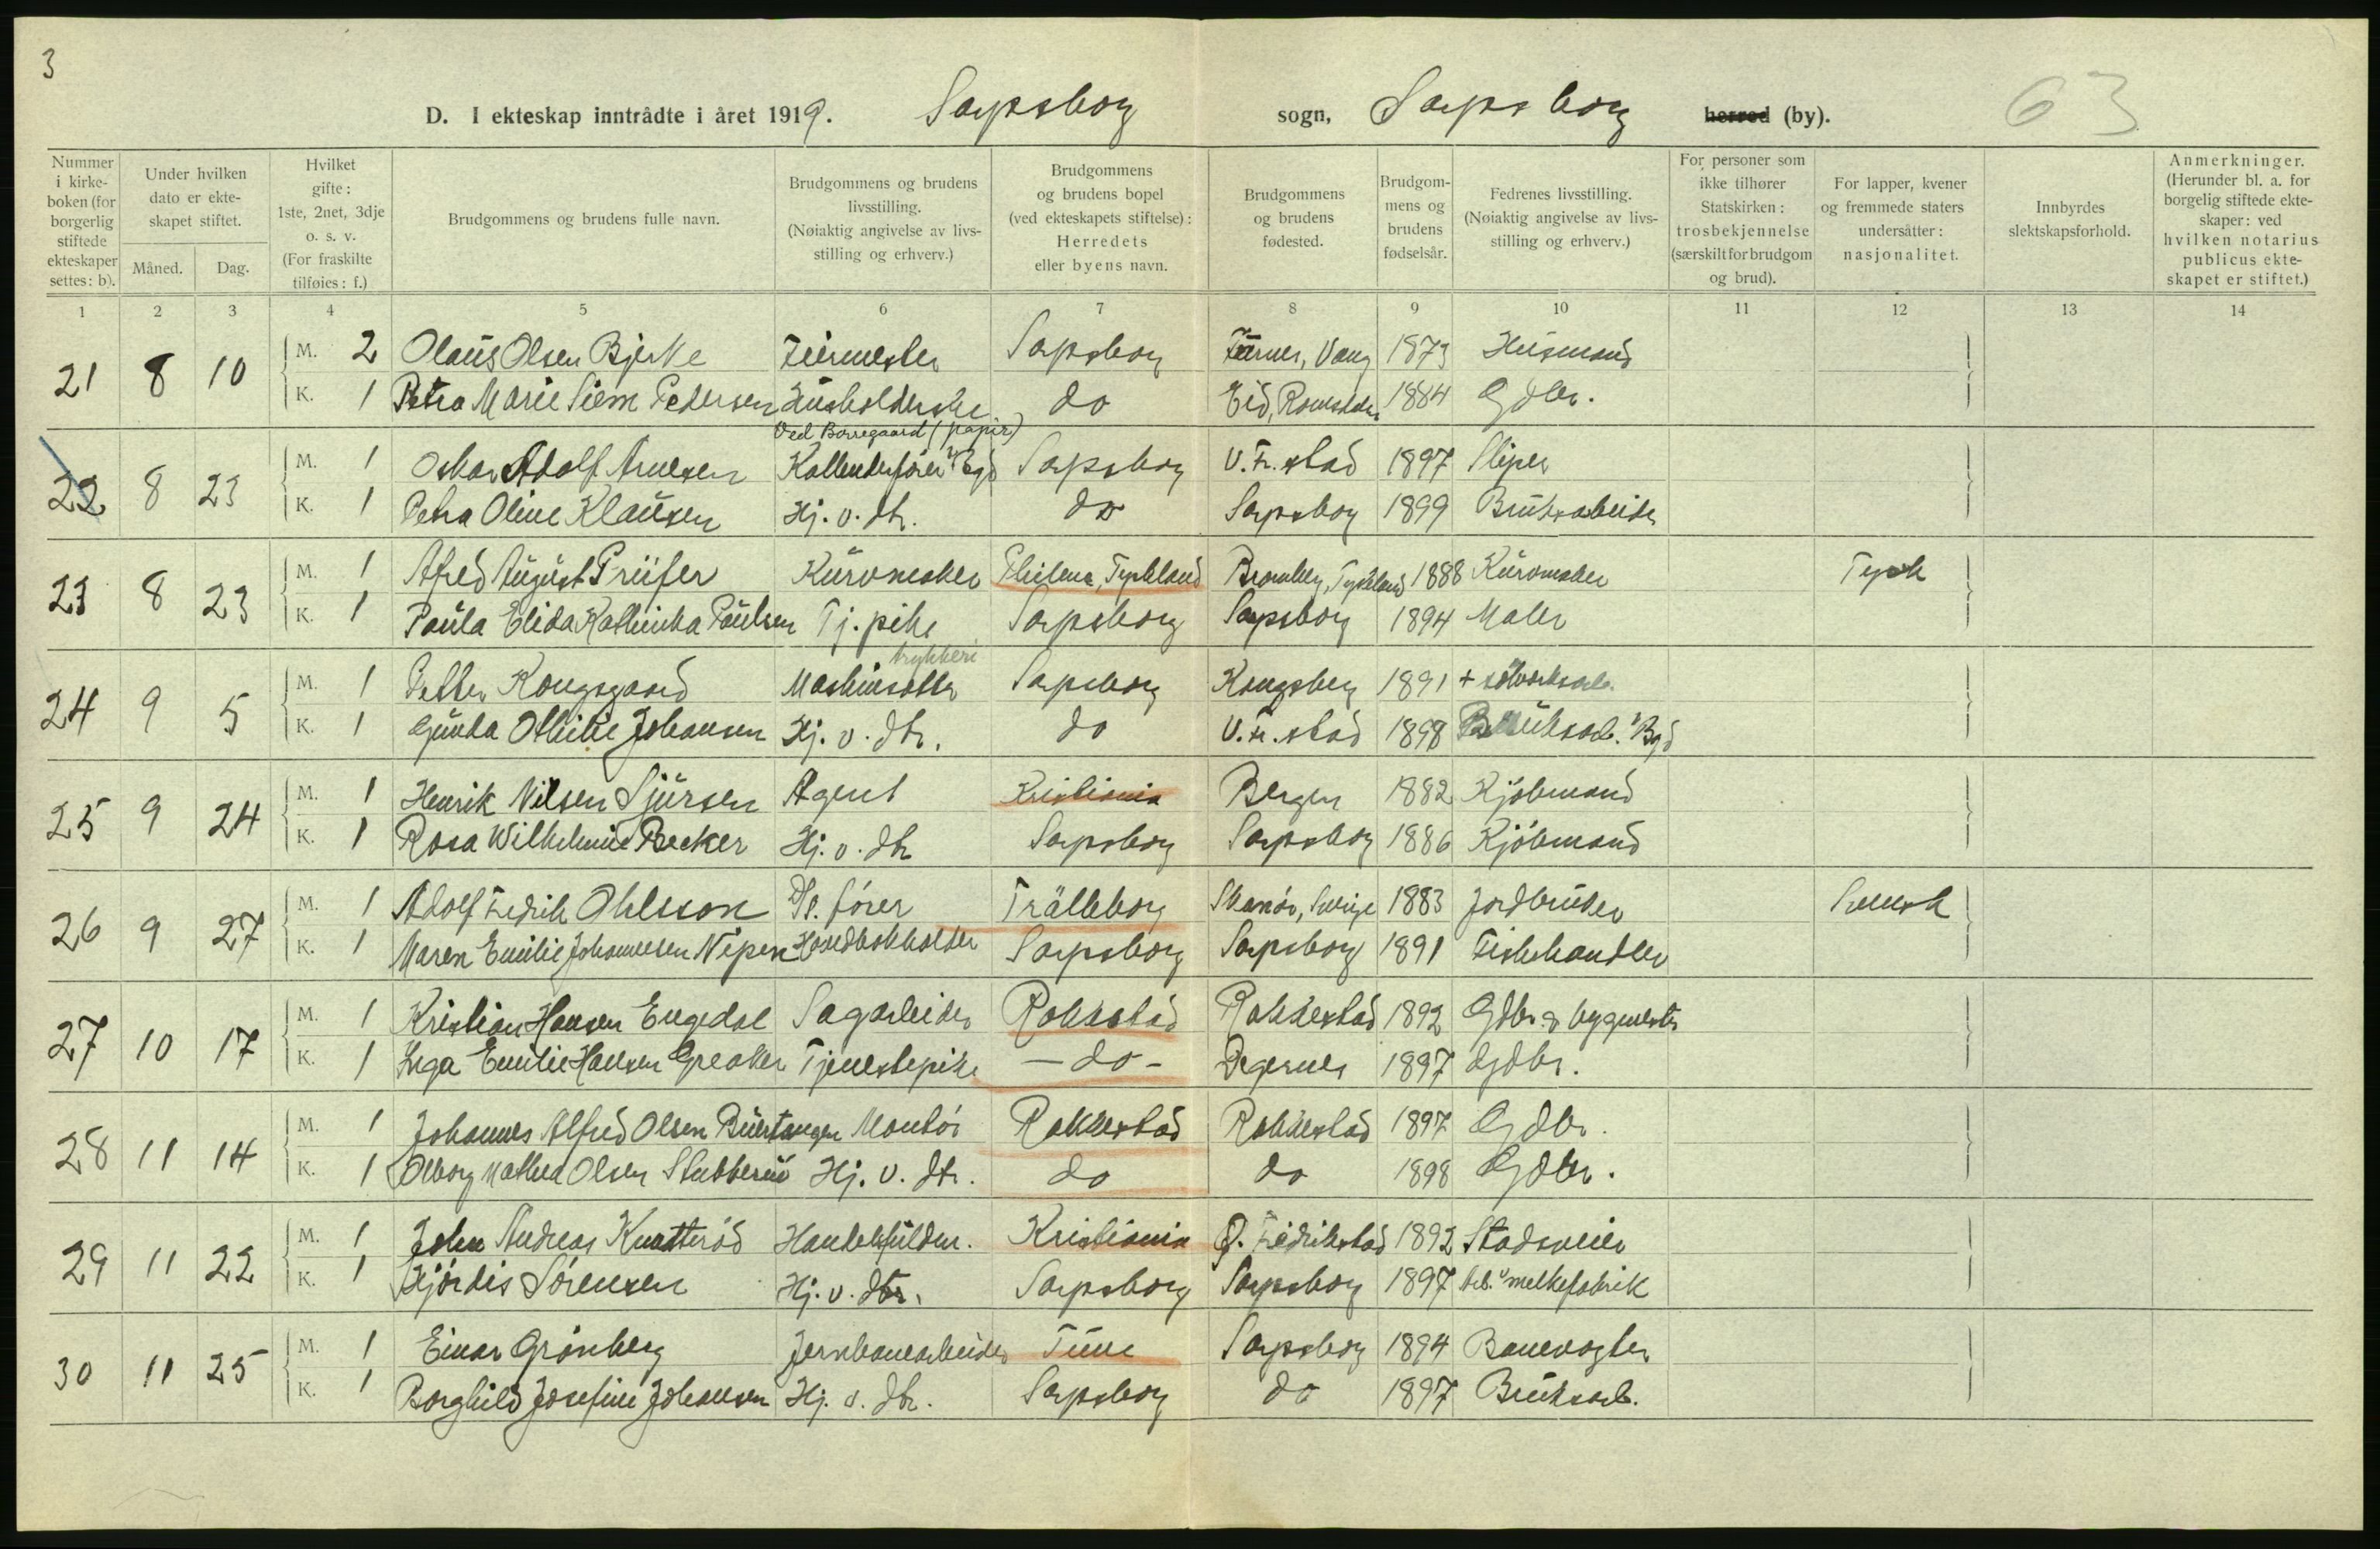 3
D. I ekteskap inntrådte i året 1919. Sarpsborg sogn, Sarpsborg herred (by). 63
Nummer i kirkeboken (for borgerlig stiftede ekteskaper settes: b).
Under hvilken dato er ekteskapet stiftet.
Måned. Dag.
Hvilket gifte: 1ste, 2net, 3dje o. s. v. (For fraskilte tilføies: f.)
Brudgommens og brudens fulle navn.
Brudgommens og brudens livsstilling. (Nøiaktig angivelse av livsstilling og erhverv.)
Brudgommens og brudens bopel (ved ekteskapets stiftelse): Herredets eller byens navn.
Brudgommens og brudens fødested.
Brudgommens og brudens fødselsår.
Fedrenes livsstilling. (Nøiaktig angivelse av livsstilling og erhverv.)
For personer som ikke tilhører Statskirken: trosbekjennelse (særskilt for brudgom og brud).
For lapper, kvener og fremmede staters undersåtter: nasjonalitet.
Innbyrdes slektskapsforhold.
Anmerkninger. (Herunder bl. a. for borgelig stiftede ekteskaper: ved hvilken notarius publicus ekteskapet er stiftet.)
1 2 3 4 5 6 7 8 9 10 11 12 13 14
21 8 10 M. 2 Olaus Olsen Bjerke Feiermester Sarpsborg Furnes, Vang 1873 Husmand
K. 1 Petra Marie Siem Pedersen Husholderske do Eid, Romsdalen 1884 Gdbr.
Ved Borregaard (papir)
22 8 23 M. 1 Oskar Adolf Arnesen Kallenderfører Bgd Sarpsborg V. Fr.stad 1897 Sliper
K. 1 Petra Oline Klausen Hj. v. dtr. do Sarpsborg 1899 Bruksarbeider
23 8 23 M. 1 Afred August Prüfer Kurvmaker Tyskland Bromberg, Tyskland 1888 Kurvmaker Tysk
K. 1 Paula Elida Kathinka Paulsen Tj. pike Sarpsborg Sarpsborg 1894 Maler
trykkeri
24 9 5 M. 1 Petter Kongsgaard Maskinsetter Sarpsborg Kongsberg 1891 + sølverksarb.
K. 1 Gunda Othilie Johansen Hj. v. dtr. do V. Fr. stad 1898 Bruksarb. Bgd
25 9 24 M. 1 Henrik Nilsen Sjursen Agent Kristiania Bergen 1882 Kjøbmand
K. 1 Rosa Wilhelmine Becker Hj. v. dtr Sarpsborg Sarpsborg 1886 Kjøbmand
26 9 27 M. 1 Adolf Fredrik Ohlsson D/s. fører Trälleborg Skanör, Sverige 1883 Jordbruker Svensk
K. 1 Maren Emilie Johannesen Nipen Hovedbokholder Sarpsborg Sarpsborg 1891 Fiskehandler
27 10 17 M. 1 Kristian Hansen Engedal Sagarbeider Rakkestad Rakkestad 1892 Gdbr. & bygmester
K. 1 Inga Emilie Hansen Greaker Tjenestepike - do - Degernes 1897 Gdbr.
28 11 14 M. 1 Johannes Alfred Olsen Buertangen Montør Rakkestad Rakkestad 1897 Gdbr.
K. 1 Olborg Mathea Olsen Stubberud Hj. v. dtr. do do 1898 Gdbr.
29 11 22 M. 1 John Andreas Knatterød Handelsfuldm. Kristiania Ø. Fredrikstad 1892 Stadsveier
K. 1 Hjørdis Sørensen Hj. v. dtr. Sarpsborg Sarpsborg 1897 Arb. v melkefabrik
30 11 25 M. 1 Einar Grønberg Jernbanearbeider Tune Sarpsborg 1894 Banevogter
K. 1 Borghild Josefine Johansen Hj. v. dtr. Sarpsborg do 1897 Bruksarb.